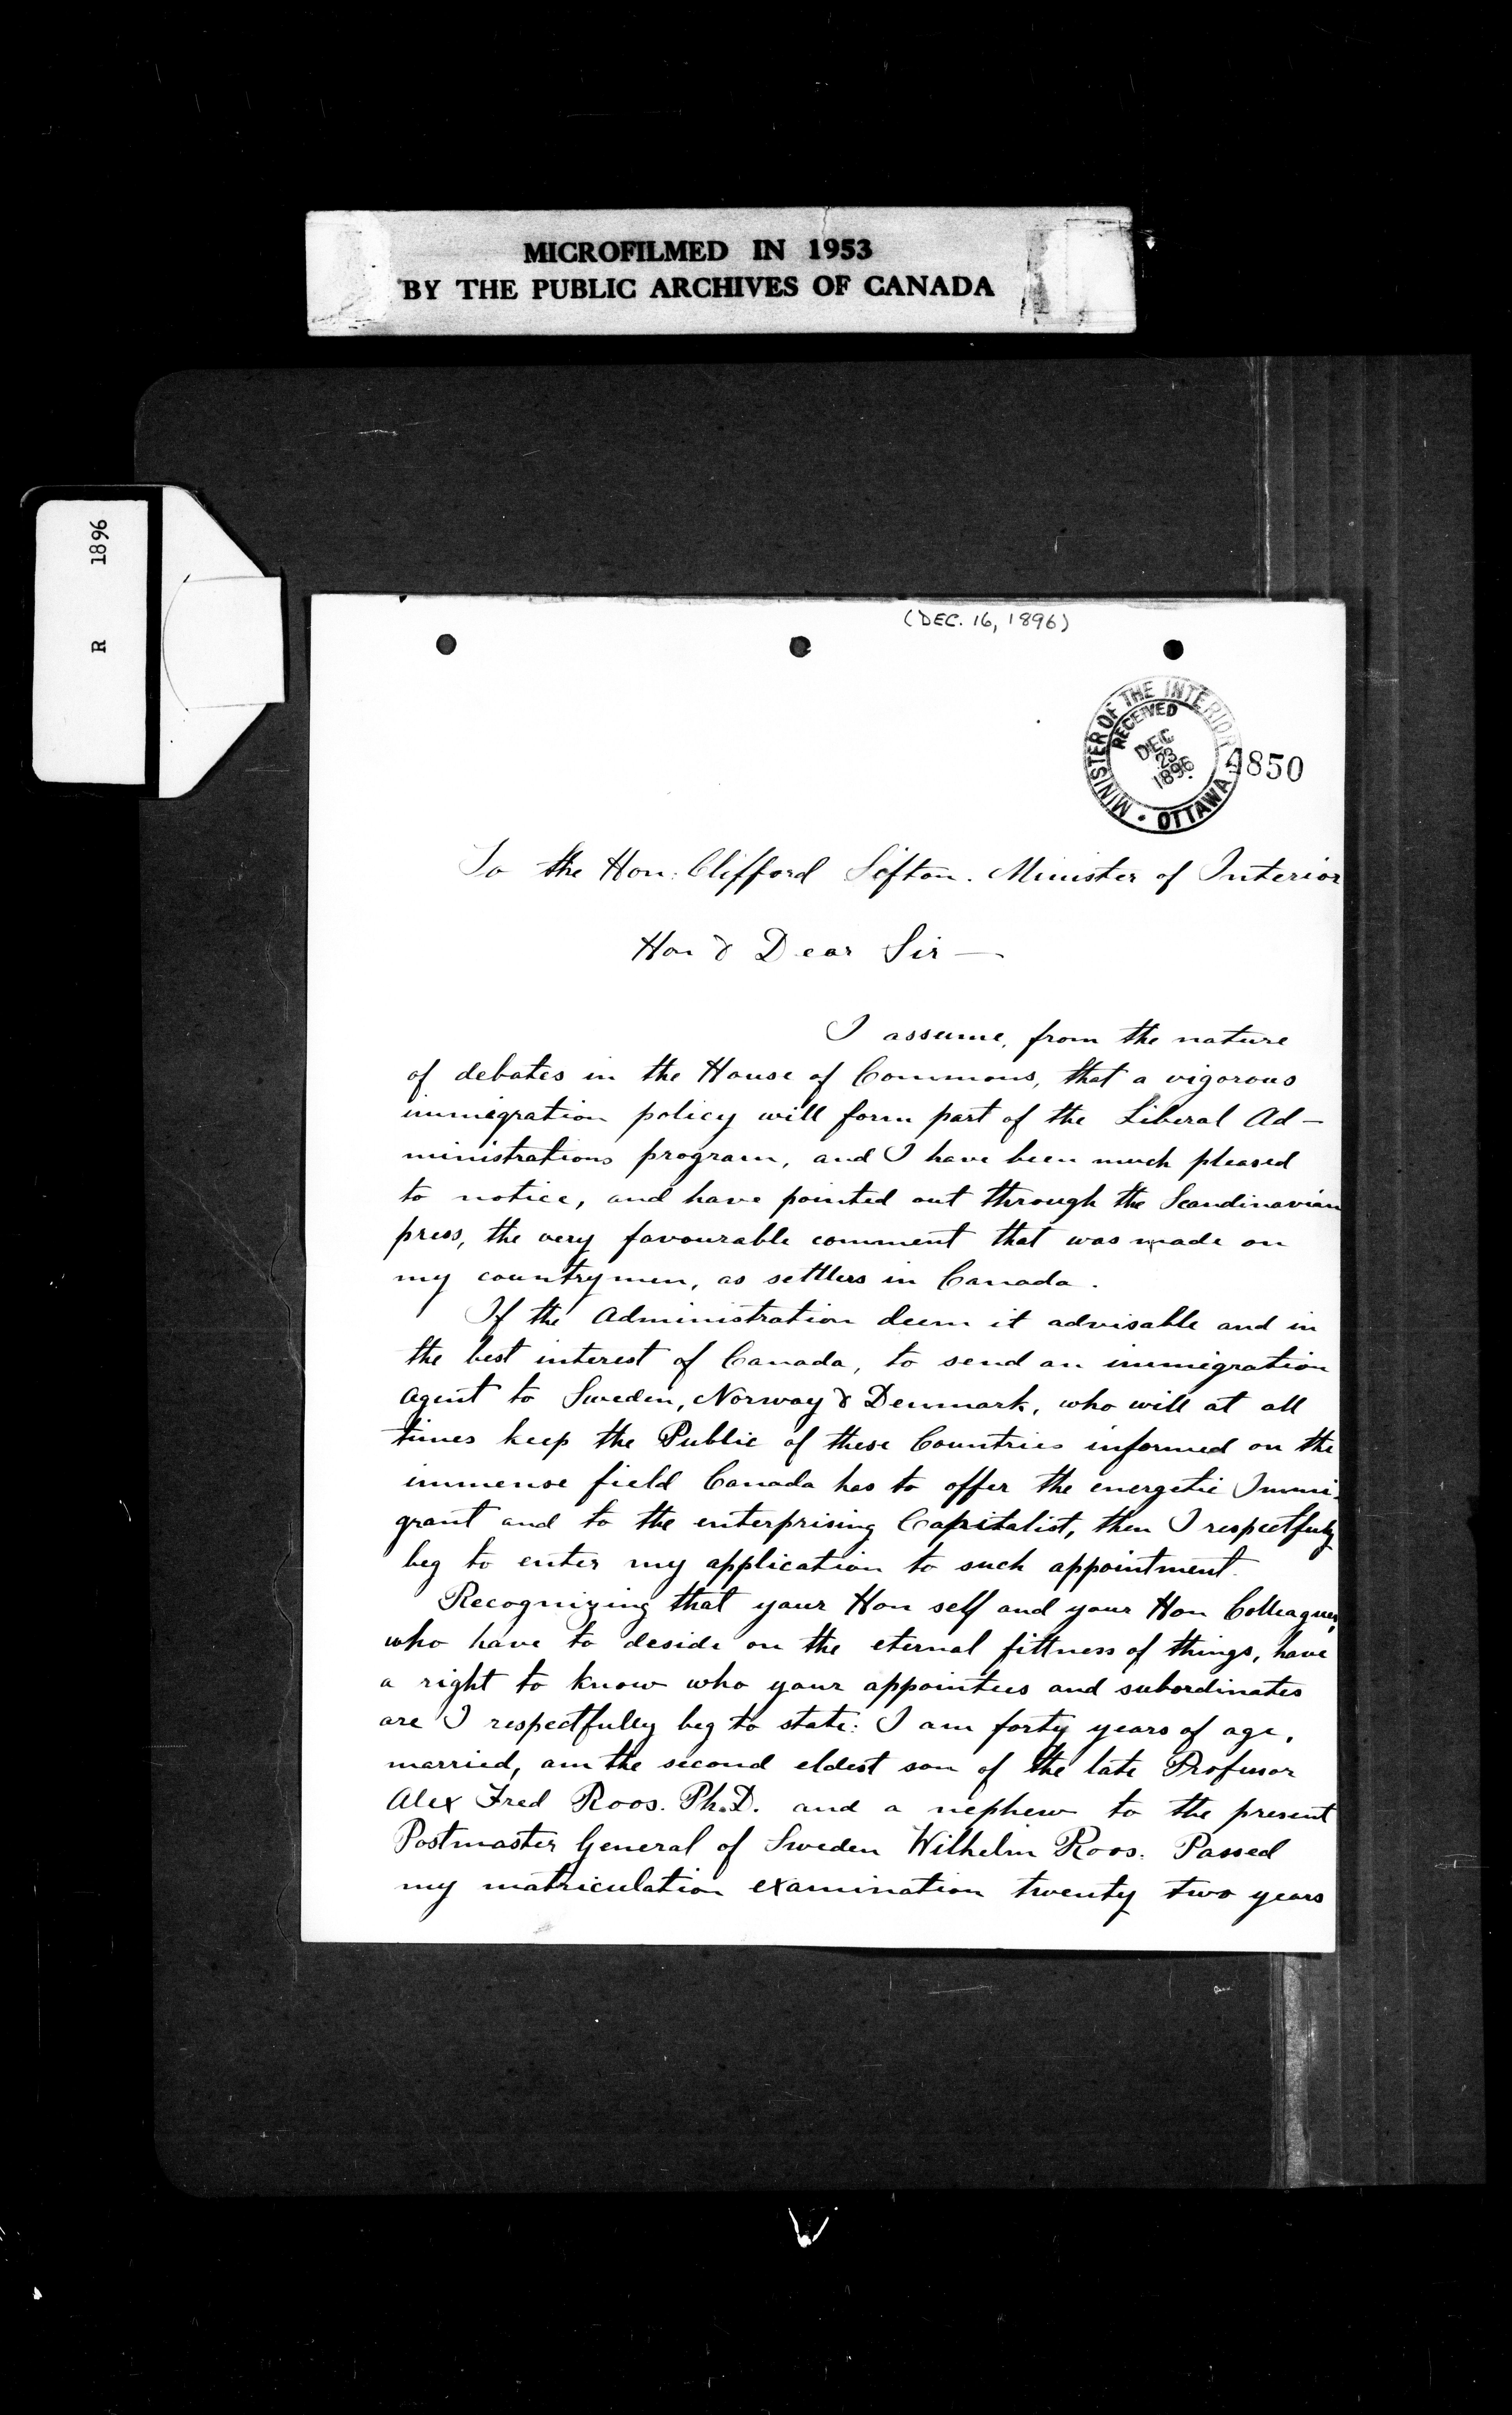 MICROFILMED IN 1953
BY THE PUBLIC ARCHIVES OF CANADA
R 1896
(DEC. 16, 1896)
MINISTER OF THE INTERIOR
RECEIVED
DEC
23
1896
OTTAWA
4850
To the Hon: Clifford Sifton. Minister of Interior
Hon & Dear Sir —
I assume, from the nature
of debates in the House of Commons, that a vigorous
immigration policy will form part of the Liberal Ad-
ministrations program, and I have been much pleased
to notice, and have pointed out through the Scandinavian
press, the very favourable comment that was made on
my countrymen, as settlers in Canada.
If the Administration deem it advisable and in
the best interest of Canada, to send an immigration
agent to Sweden, Norway & Denmark, who will at all
times keep the Public of these Countries informed on the
immense field Canada has to offer the energetic Immi-
grant and to the enterprising Capitalist, then I respectfully
beg to enter my application to such appointment.
Recognizing that your Hon self and your Hon Colleagues,
who have to deside on the eternal fittness of things, have
a right to know who your appointees and subordinates
are I respectfully beg to state: I am forty years of age,
married, am the second eldest son of the late Professor
Alex Fred Roos. Ph.D. and a nephew to the present
Postmaster General of Sweden Wilhelm Roos. Passed
my matriculation examination twenty two years